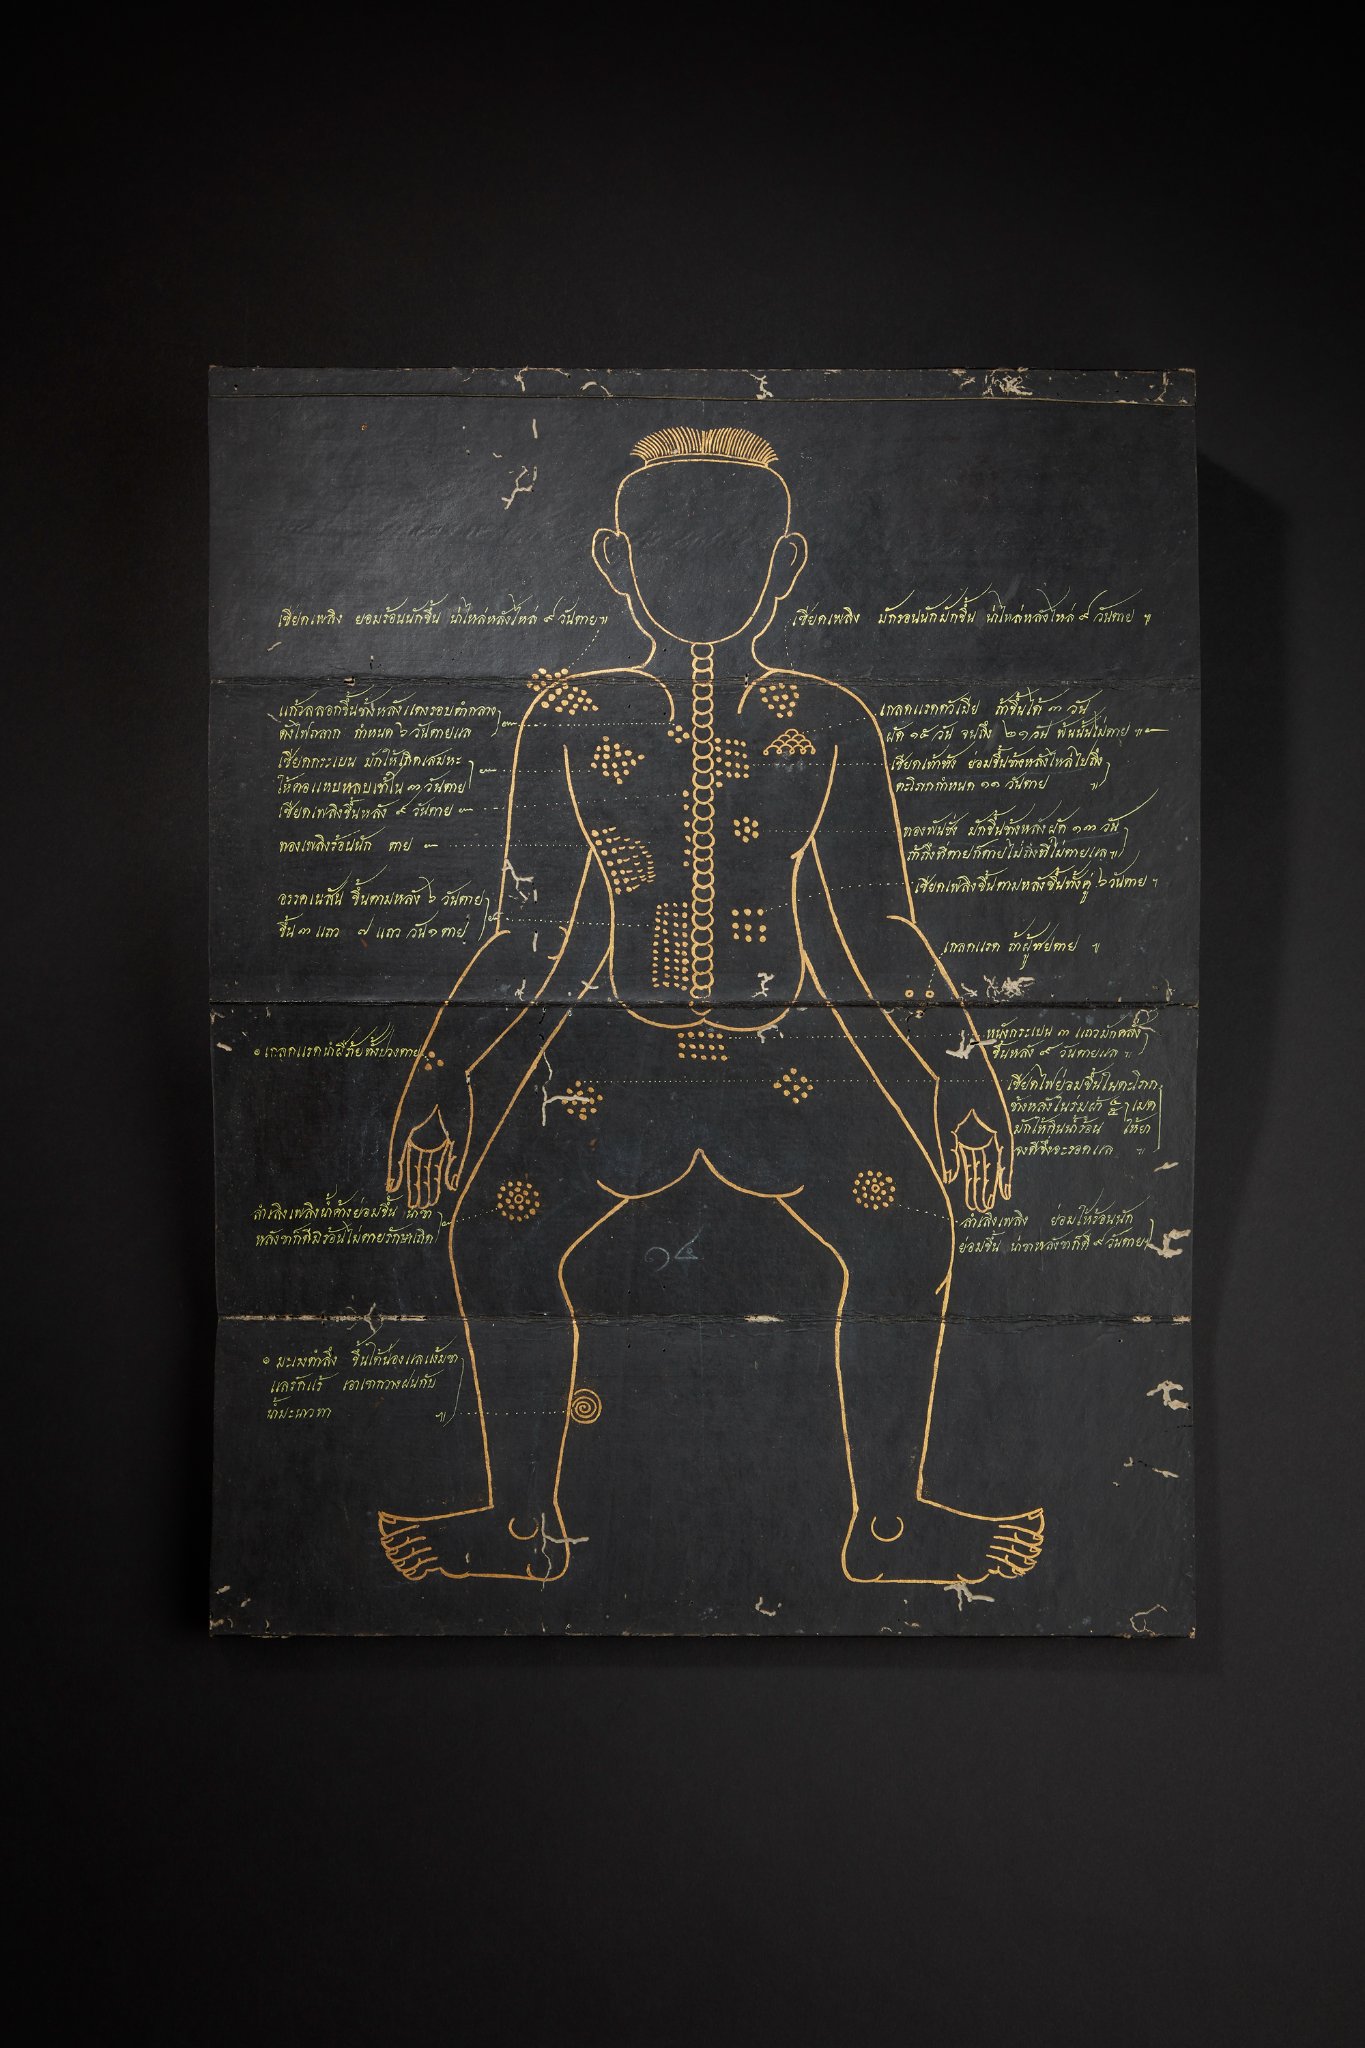 เซียดเพลิง ย่อมร้อนนักขึ้น น่าไหล่หลังไหล่ ๙ วันตาย ฯ
เซียดเพลิง มักรอนนักมักขึ้น น่าไหล่หลังไหล่ ๙ วันตาย ฯ
ขึ้นข้างหลังแดงรอบดำกลาง
ดังไฟถลาก กำหนด ๖ วันตายแล
เซียดกระเบน มักให้เกิดเสมหะ
ให้คอแหบหอบเข้าใน ๓ วันตาย
เซียดเพลิงขึ้นหลัง ๙ วันตาย
ทองเพลิงร้อนนัก ตาย
ขึ้นตามหลัง ๖ วันตาย
ขึ้น ๓ แถว ๗ แถว วัน ๑ ตาย
เกลดแรดตัวเมีย ถ้าขึ้นได้ ๓ วัน
ผัด ๑๕ วัน จนถึง ๒๑ วัน พ้นนั้นไม่ตาย ฯ
ย่อมขึ้นข้างหลังไหล่ไปถึง
ตะโภกกำหนด ๑๑ วันตาย ฯ
ทองพันชั่ง มักขึ้นข้างหลังผัด ๑๓ วัน
ถ้าถึงที่ตายก็ตายไม่ถึงที่ไม่ตายแล ฯ
เซียดเพลิงขึ้นตามหลังขึ้นทั้งคู่ ๖ วันตาย ฯ
เกลดแรด ถ้าผู้ ตาย ฯ
๏ เกลดแรดน้ำผีภัยทั้งปวงตาย
หนังกระเบน ๓ แถวมักคลั่ง
ขึ้นหลัง ๙ วันตายแล ฯ
เซียดไฟย่อมขึ้นในตะโภก
ข้างหลังในร่มผ้า เมด
มักให้กินน้ำร้อน ให้ยา
จงดีจึงจะรอดแล ฯ
สำเลิงเพลิงน้ำค้างย่อมขึ้น น่าขา
หลังขาก็ดีมิร้อนไม่ตายรักษาเถิด
สำเลิงเพลิง ย่อมให้ร้อนนัก
ย่อมขึ้น น่าขาหลังขาก็ดี ๙ วันตาย ฯ
๑๔
๏ มะเรงตำลึง ขึ้นใต้น่องแลแง้มขา
แลรักแร้ เอาเขากวางฝนกับ
น้ำมะนาวทา ฯ